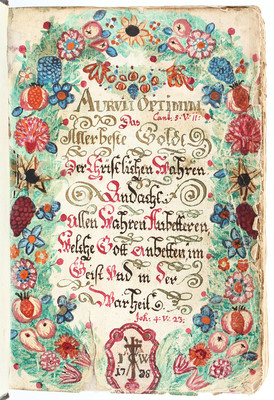 AURVM OPTIMVM
Cant: 5. V. 11.
Das
Allerbeste Goldt
Der Christlichen Wahren
Andacht.
allen Wahren Anbetteren
Welche Gott anbetten im
Geist Vnd in Der
Warheit.
Joh: 4. V. 23.
I W
17 38